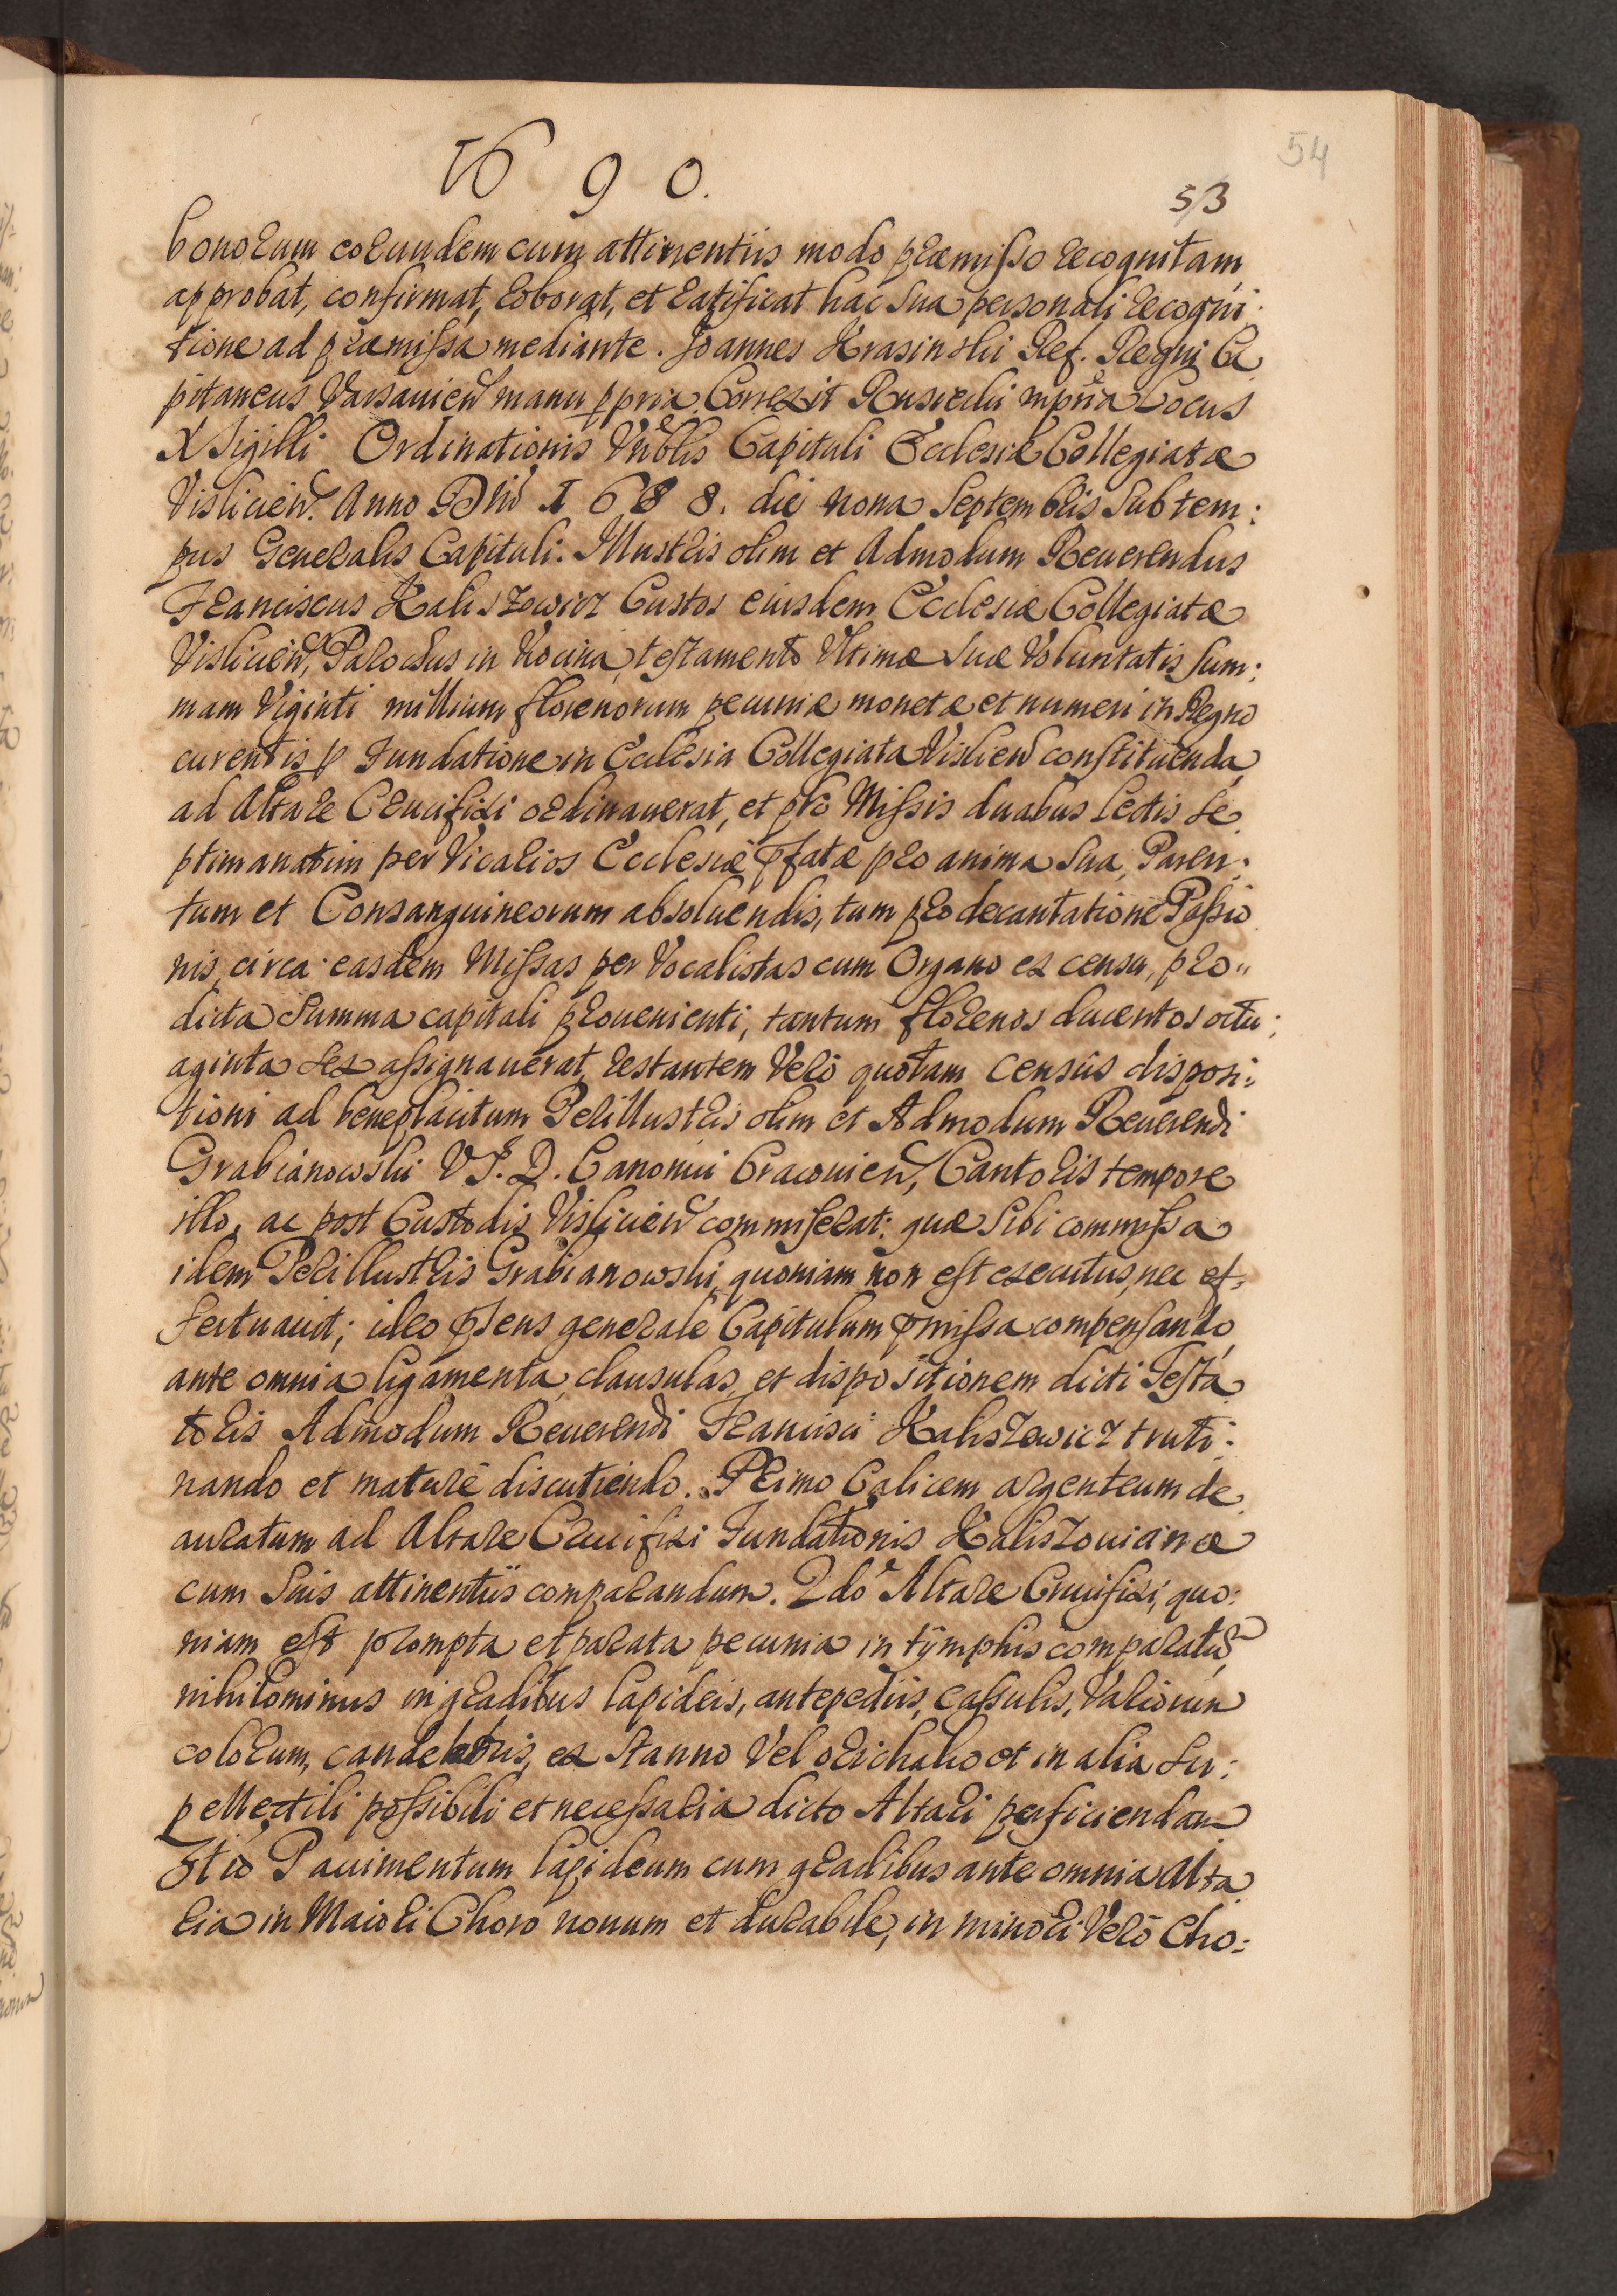 1690.
54
53
bonorum eorundem cum attinentiis modo præmisso recognitam
approbat, confirmat, roborat, et ratificat hac sua personali recogni:
tione ad præmissa mediante. Joannes Krasinski Ref. Regni Ca
pitaneus Varsauien manu ppria. Correxit Rusiecki mpria Locus
X Sigilli Ordinationis Vnblis Capituli Ecclesiæ Collegiatæ
Visliciens. Anno Dni 1688. die nona Septembris sub tem:
pus Generalis Capituli. Illustris olim et Admodum Reuerendus
Franciscus Kaliszowicz Custos eiusdem Ecclesiæ Collegiatæ
Vislicien, Parochus in Kocina, testamento Vltimæ suæ Voluntatis sum:
mam Viginti millium florenorum pecuniæ monetæ et numeri in Regno
curentis p Fundatione in Ecclesia Collegiata Vislicien constituenda
ad Altare Crucifixi ordinauerat, et pro Missis duabus lectis se
ptimanatim per Vicarios Ecclesiæ pfatæ pro anima sua, Paren:
tum et Consanguineorum absoluendis, tum pro decantatione Passio
nis, circa easdem Missas per Vocalistas cum Organo ex censu, præ"
dicta summa capitali prouenienti, tantum florenos ducentos octu:
aginta sex assignauerat, restantem Vero quotam census disposi:
tioni ad beneplacitum Perillustris olim et Admodum Reuerendi
Grabianowski V.J.D. Canonici Cracouien, Cantoris tempore
illo, ac post Custodis Vislicien commiserat: quæ sibi commissa
idem Perillustris Grabianowski, quoniam non est executus, nec ef:
fectuauit; ideo psens generale Capitulum pmissa compensando,
ante omnia ligamenta, clausulas, et dispositionem dicti Testa
toris Admodum Reuerendi Francisci Kaliszowicz truti:
nando et maturè discutiendo. Primo Calicem argenteum de
auratum ad Altare Crucifixi Fundationis Kaliszouianæ
cum suis attinentiis comparandum. 2do Altare Crucifixi, quo:
niam est prompta et parata pecunia in tÿmphis comparatũ,
nihilominus in gradibus lapideis, antepediis, casulis, Variorum
colorum, candelabris, ex stanno Vel orichalco et in alia su:
pellectili possibili et necessaria dicto Altari perficiendam
3tio Pauimentum lapideum cum gradibus ante omnia Alta
ria in Maiori Choro nouum et durabile, in minori Verò Cho: